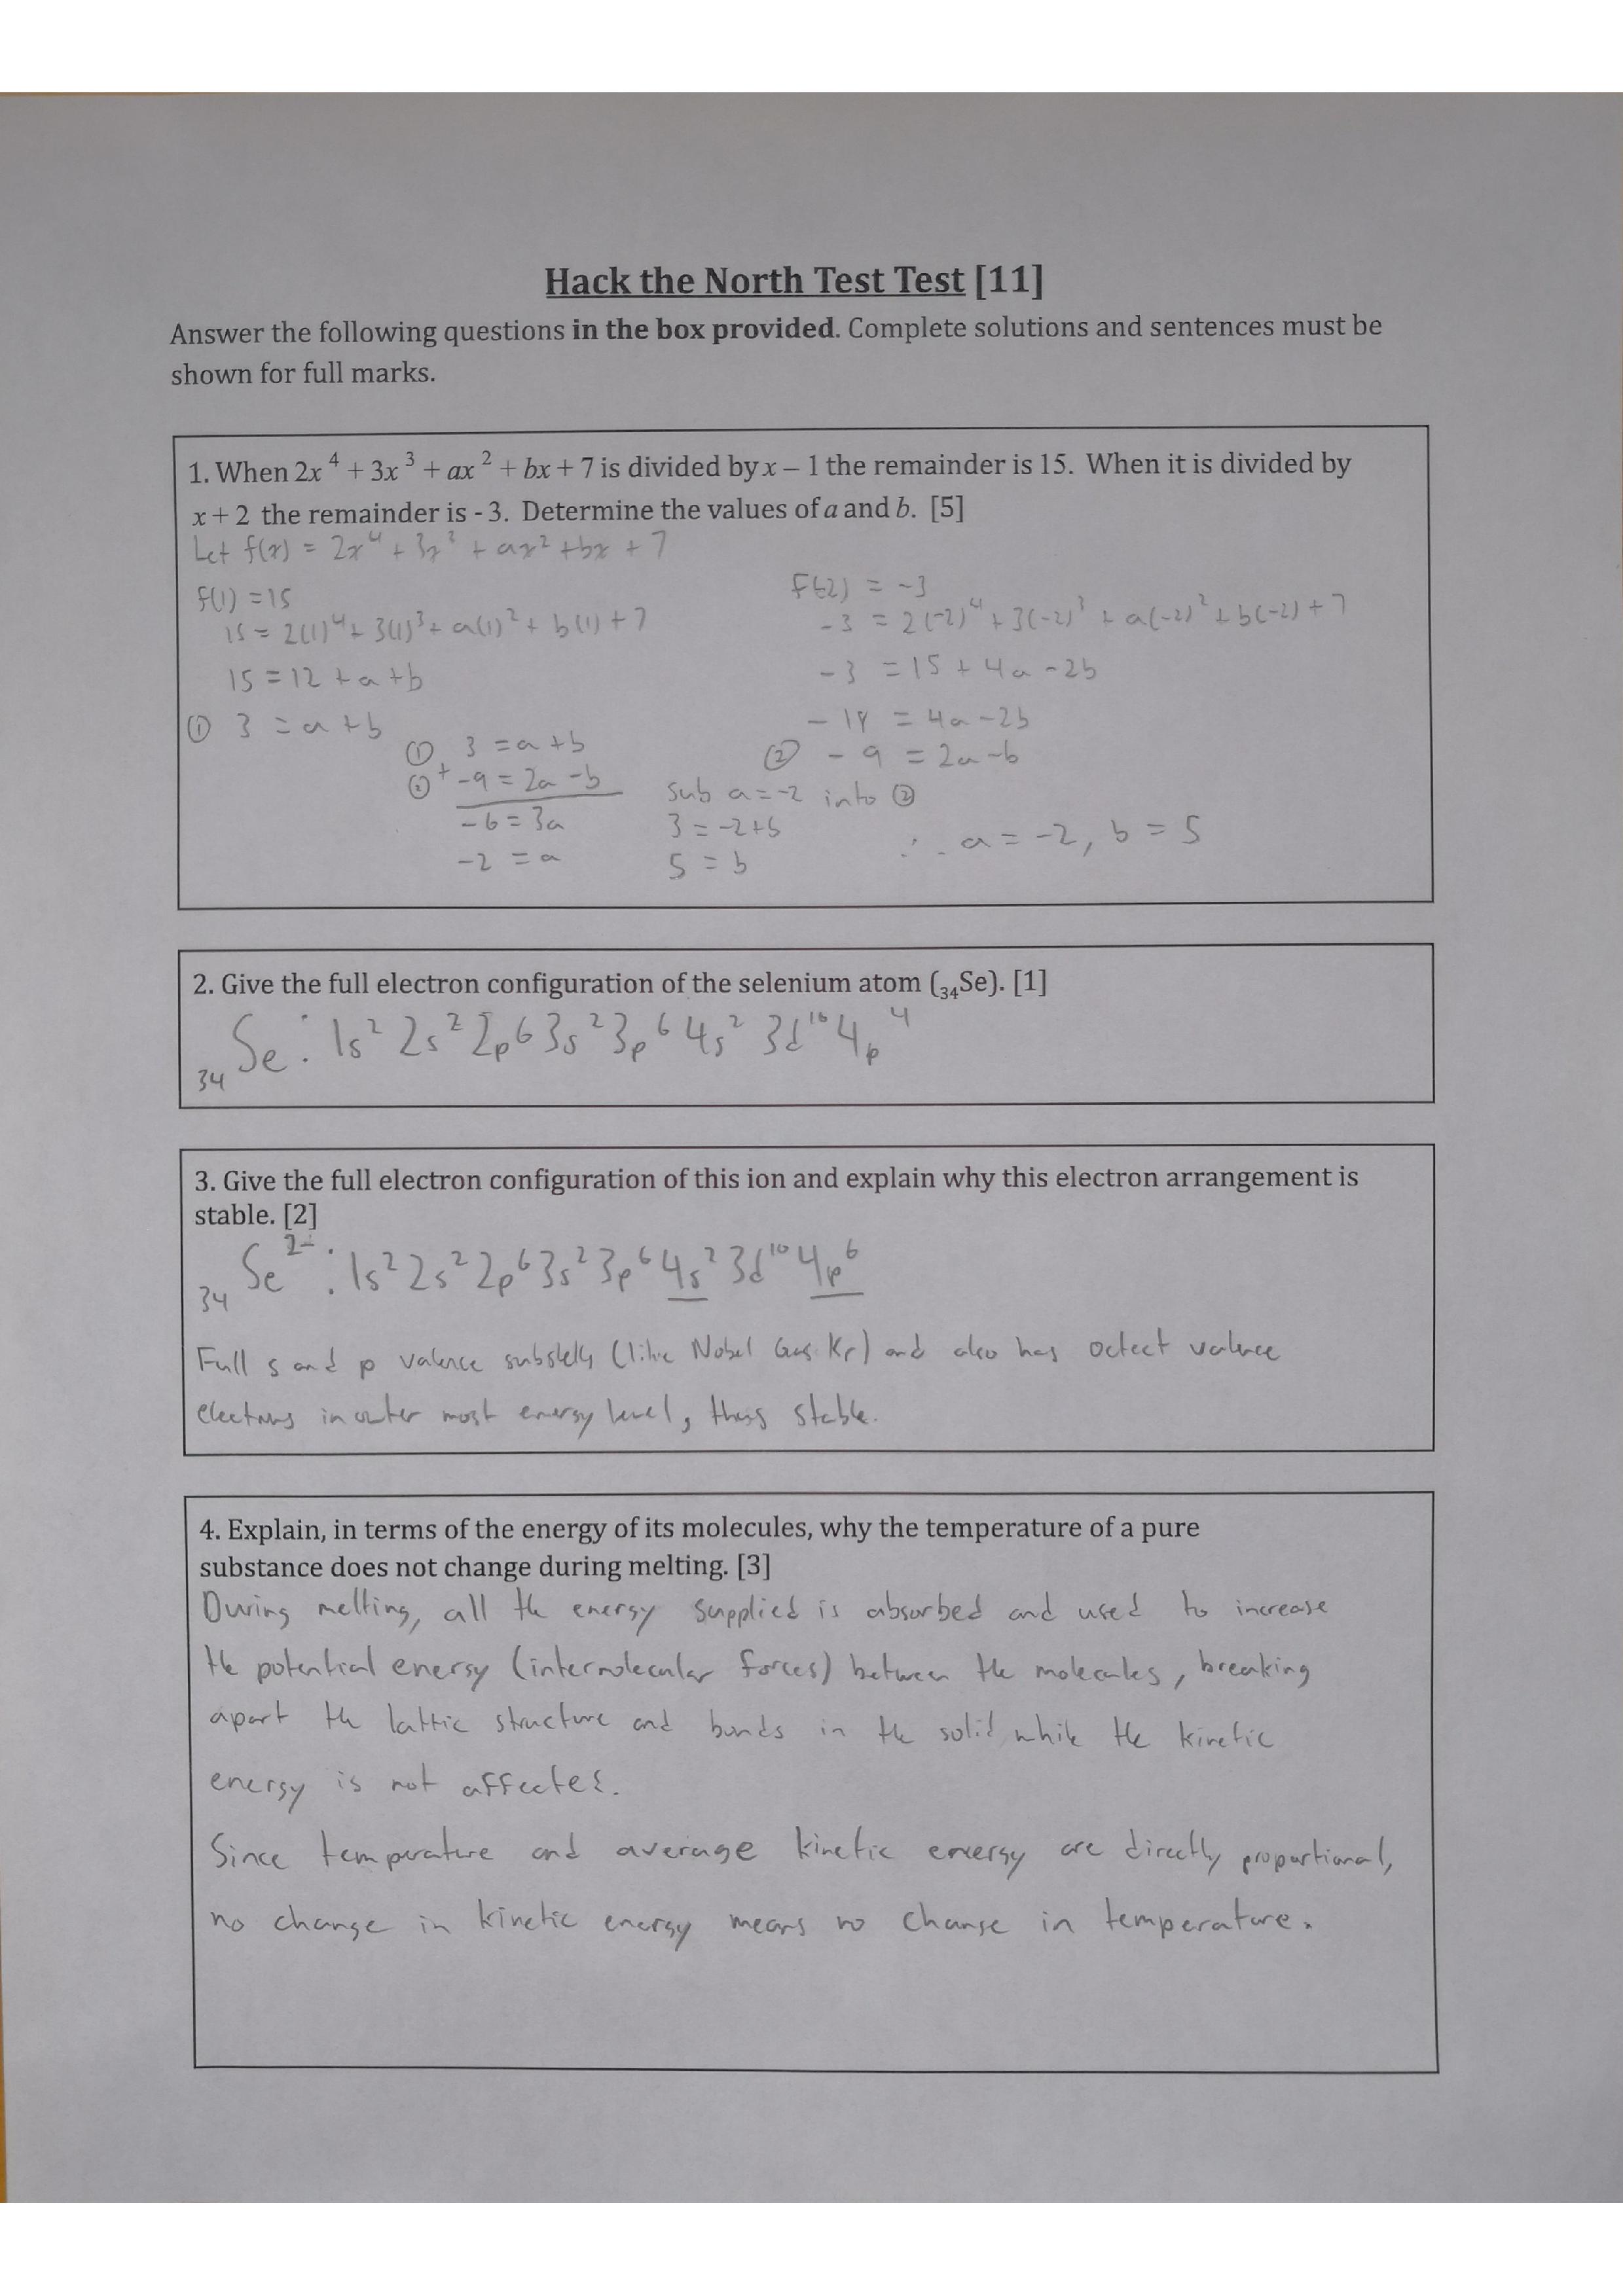 Hack the North Test Test [11]
Answer the following questions in the box provided. Complete solutions and sentences must be
shown for full marks.
1. When 2x⁴ + 3x³ + ax² + bx + 7 is divided by x – 1 the remainder is 15. When it is divided by
x + 2 the remainder is - 3. Determine the values of a and b. [5]
Let f(x) = 2x⁴ + 3x³ + ax² + bx + 7
f(1) = 15
15 = 2(1)⁴ + 3(1)³ + a(1)² + b(1) + 7
15 = 12 + a + b
① 3 = a + b
f(-2) = -3
-3 = 2(-2)⁴ + 3(-2)³ + a(-2)² + b(-2) + 7
-3 = 15 + 4a - 2b
-18 = 4a - 2b
② -9 = 2a - b
① 3 = a + b
② + -9 = 2a - b
-6 = 3a
-2 = a
sub a = -2 into ②
3 = -2 + b
5 = b
∴ a = -2, b = 5
2. Give the full electron configuration of the selenium atom (₃₄Se). [1]
₃₄Se: 1s² 2s² 2p⁶ 3s² 3p⁶ 4s² 3d¹⁰ 4p⁴
3. Give the full electron configuration of this ion and explain why this electron arrangement is
stable. [2]
₃₄Se²⁻: 1s² 2s² 2p⁶ 3s² 3p⁶ 4s² 3d¹⁰ 4p⁶
Full s and p valence subshells (like Nobel Gas Kr) and also has octect valence
electrons in outer most energy level, thus stable.
4. Explain, in terms of the energy of its molecules, why the temperature of a pure
substance does not change during melting. [3]
During melting, all the energy supplied is absorbed and used to increase
the potential energy (intermolecular forces) between the molecules, breaking
apart the lattic structure and bonds in the solid while the kinetic
energy is not affected.
Since temperature and average kinetic energy are directly proportional,
no change in kinetic energy means no change in temperature.